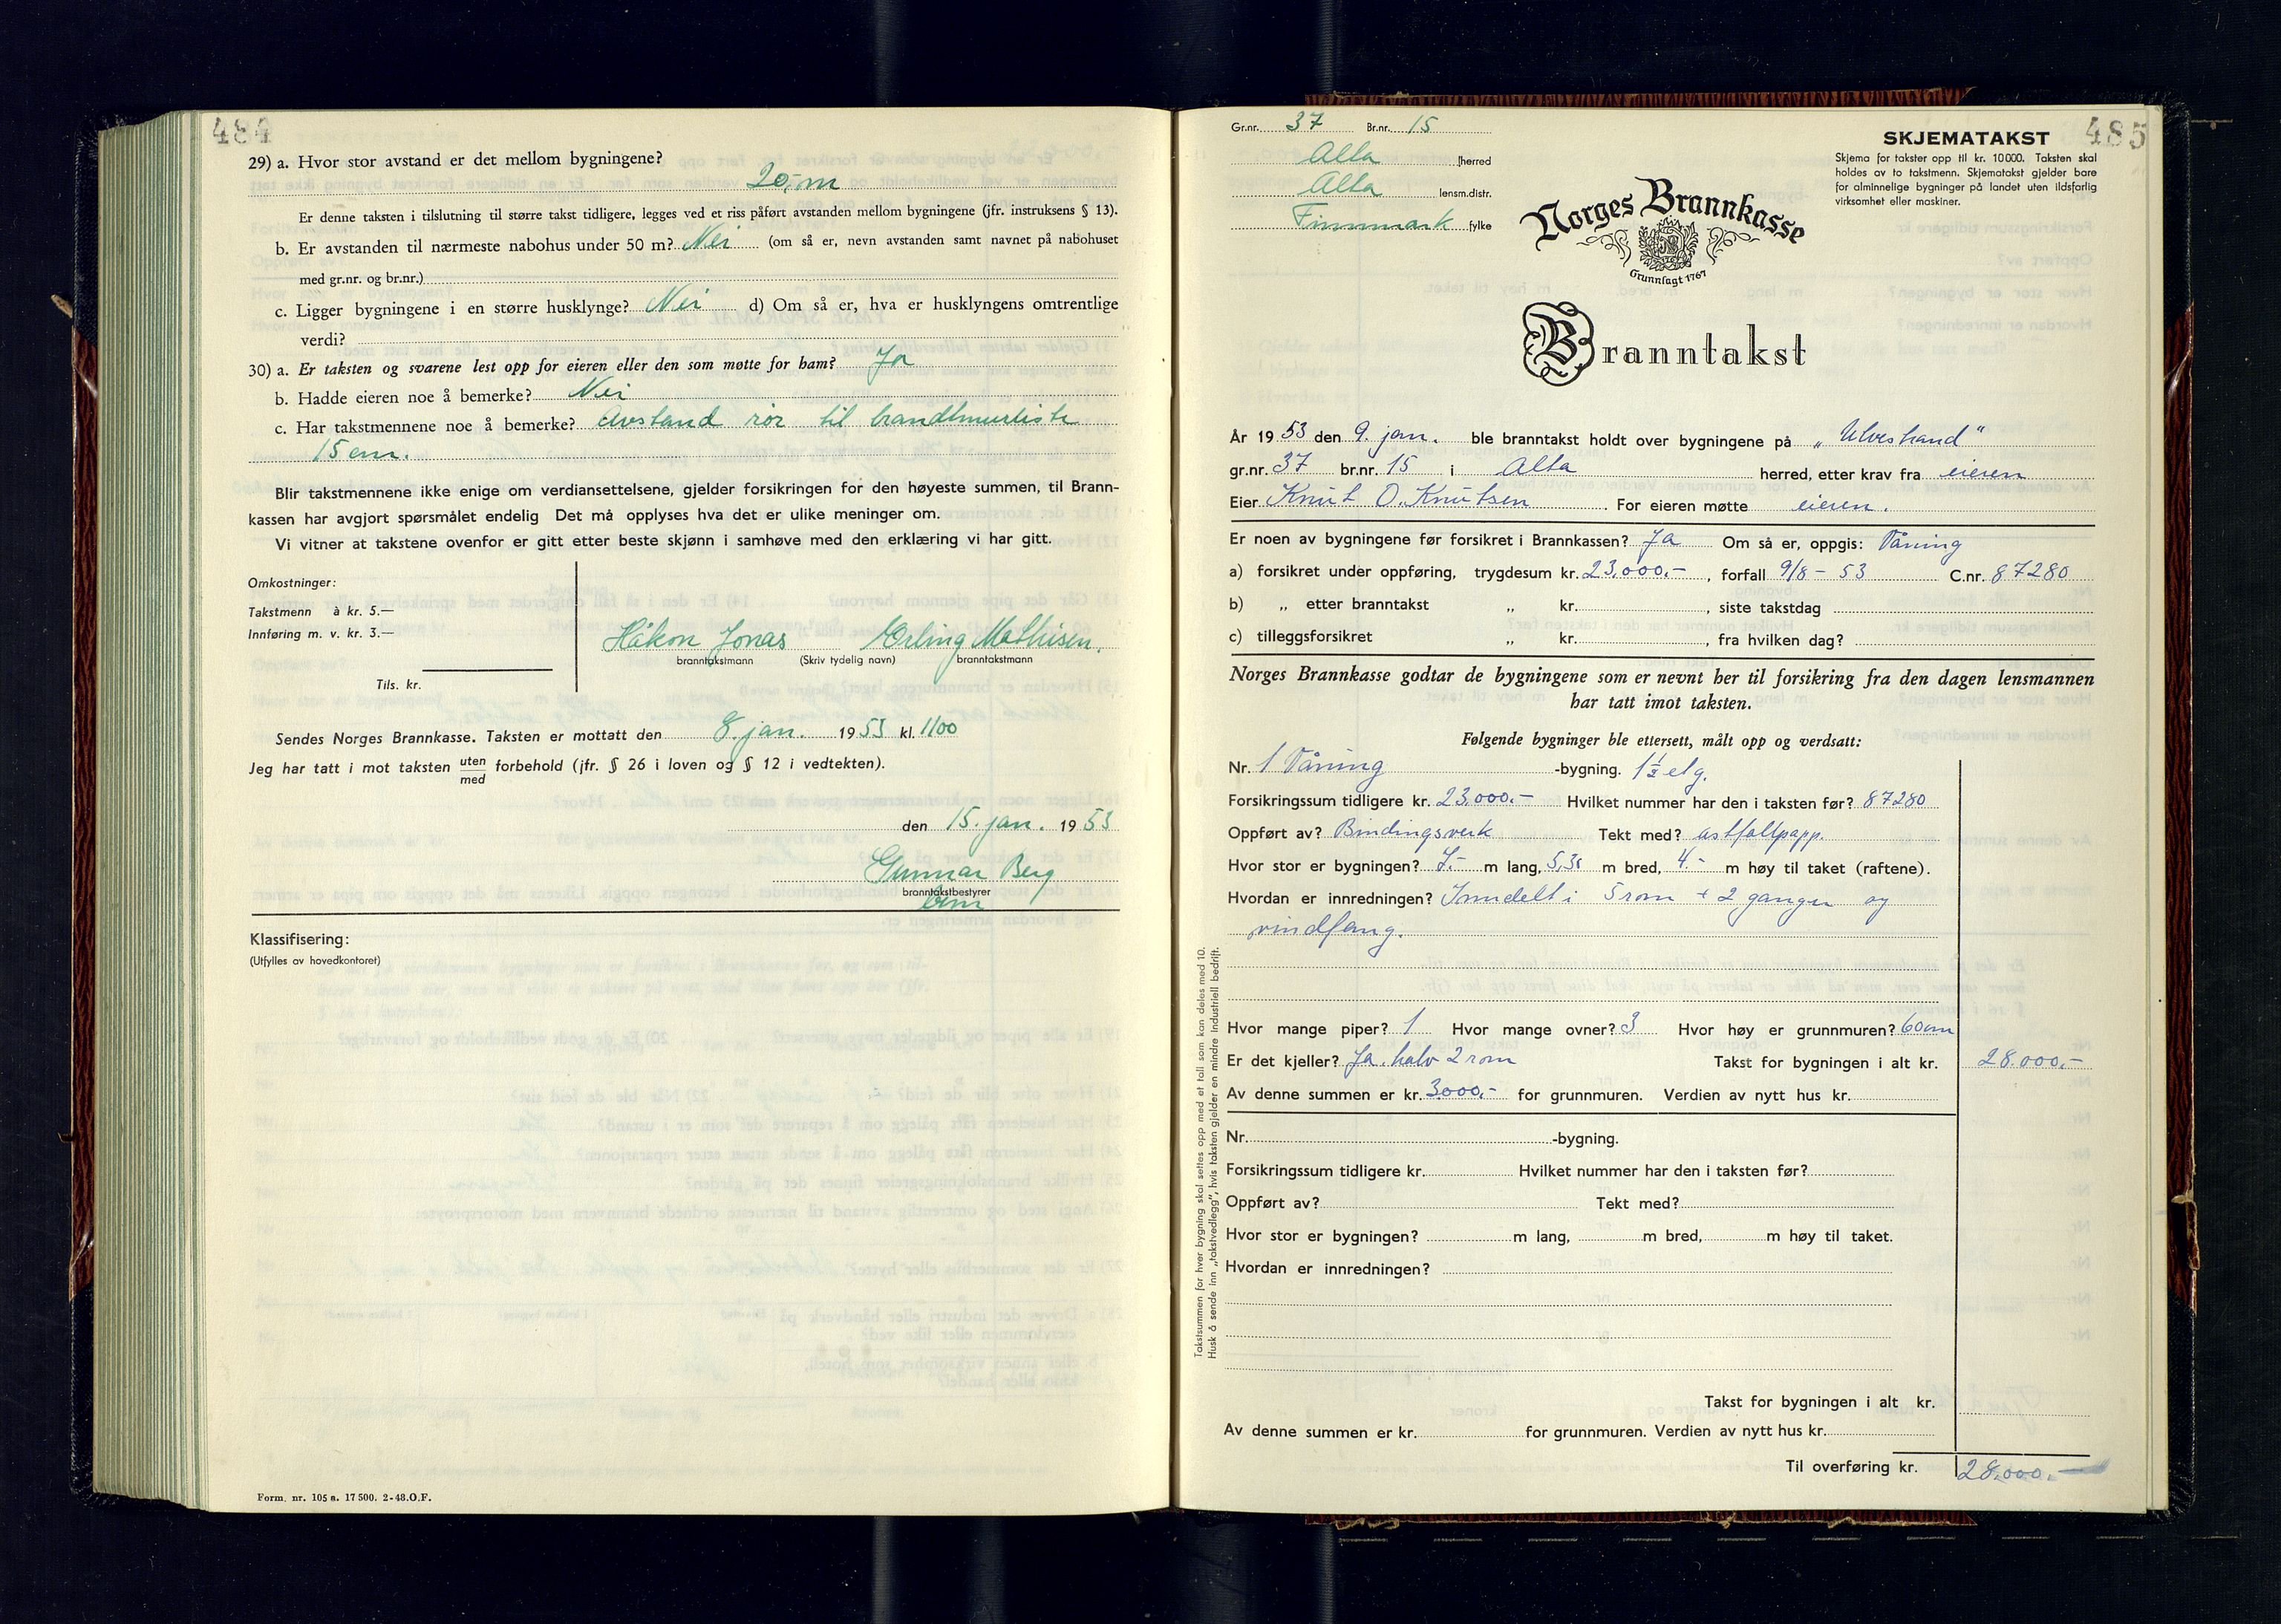 484
29) a. Hvor stor avstand er det mellom bygningene?
20,- m
Er denne taksten i tilslutning til større takst tidligere, legges ved et riss påført avstanden mellom bygningene (jfr. instruksens § 13).
b. Er avstanden til nærmeste nabohus under 50 m? Nei (om så er, nevn avstanden samt navnet på nabohuset
med gr.nr. og br.nr.)
c. Ligger bygningene i en større husklynge? Nei d) Om så er, hva er husklyngens omtrentlige
verdi?
30) a. Er taksten og svarene lest opp for eieren eller den som møtte for ham? Ja
b. Hadde eieren noe å bemerke? Nei
c. Har takstmennene noe å bemerke? Avstand rör til brandmurliste
15 cm.
Blir takstmennene ikke enige om verdiansettelsene, gjelder forsikringen for den høyeste summen, til Brann-
kassen har avgjort spørsmålet endelig Det må opplyses hva det er ulike meninger om.
Vi vitner at takstene ovenfor er gitt etter beste skjønn i samhøve med den erklæring vi har gitt.
Omkostninger:
Takstmenn à kr. 5.—
Innføring m. v. kr. 3.—
Tils. kr.
Håkon Jonas Erling Mathisen.
branntakstmann (Skriv tydelig navn) branntakstmann
Sendes Norges Brannkasse. Taksten er mottatt den 8. jan. 1953 kl. 1100
Jeg har tatt i mot taksten uten
med forbehold (jfr. § 26 i loven og § 12 i vedtekten).
den 15. jan. 1953
Gunnar Berg
branntakstbestyrer
Klassifisering:
(Utfylles av hovedkontoret)
Form. nr. 105 a. 17 500. 2-48. O.F.
485
Gr.nr. 37 Br.nr. 15
Alta herred
Alta lensm.distr.
Finnmark fylke
SKJEMATAKST
Skjema for takster opp til kr. 10 000. Taksten skal
holdes av to takstmenn. Skjematakst gjelder bare
for alminnelige bygninger på landet uten ildsfarlig
virksomhet eller maskiner.
Norges Brannkasse
Grunnlagt 1767
Branntakst
År 1953 den 9. jan. ble branntakst holdt over bygningene på „Ulvestrand"
gr.nr. 37 br.nr. 15 i Alta herred, etter krav fra eieren
Eier Knut O. Knutsen. For eieren møtte eieren.
Er noen av bygningene før forsikret i Brannkassen? Ja Om så er, oppgis: Våning
a) forsikret under oppføring, trygdesum kr. 23.000.-, forfall 9/8 - 53 C.nr. 87280
b) „ etter branntakst „ kr. , siste takstdag
c) tilleggsforsikret „ kr. , fra hvilken dag?
Norges Brannkasse godtar de bygningene som er nevnt her til forsikring fra den dagen lensmannen
har tatt imot taksten.
Følgende bygninger ble ettersett, målt opp og verdsatt:
Nr. 1 Våning -bygning. 1½ etg.
Forsikringssum tidligere kr. 23.000.- Hvilket nummer har den i taksten før? 87280
Oppført av? Bindingsverk Tekt med? astfaltpapp.
Hvor stor er bygningen? 7.- m lang, 5,30 m bred, 4.- m høy til taket (raftene).
Hvordan er innredningen? Inndelt i 5 rom + 2 ganger og
vindfang.
Hvor mange piper? 1 Hvor mange ovner? 3 Hvor høy er grunnmuren? 60 cm
Er det kjeller? Ja, halv 2 rom Takst for bygningen i alt kr. 28.000,-
Av denne summen er kr. 3000,- for grunnmuren. Verdien av nytt hus kr.
Nr. -bygning.
Forsikringssum tidligere kr. Hvilket nummer har den i taksten før?
Oppført av? Tekt med?
Hvor stor er bygningen? m lang, m bred, m høy til taket.
Hvordan er innredningen?
Takst for bygningen i alt kr.
Av denne summen er kr. for grunnmuren. Verdien av nytt hus kr.
Til overføring kr. 28.000.-
Takstsummen for hver bygning skal settes opp med et tall som kan deles med 10.
Husk å sende inn „takstvedlegg", hvis taksten gjelder en mindre industriell bedrift.